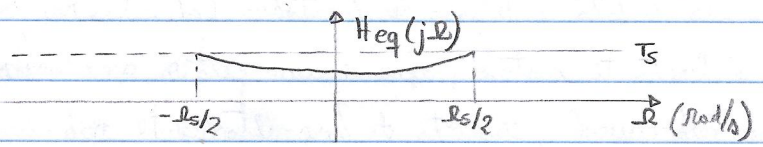 Heq(jΩ)
Ts
-Ωs/2
Ωs/2
Ω (rad/s)